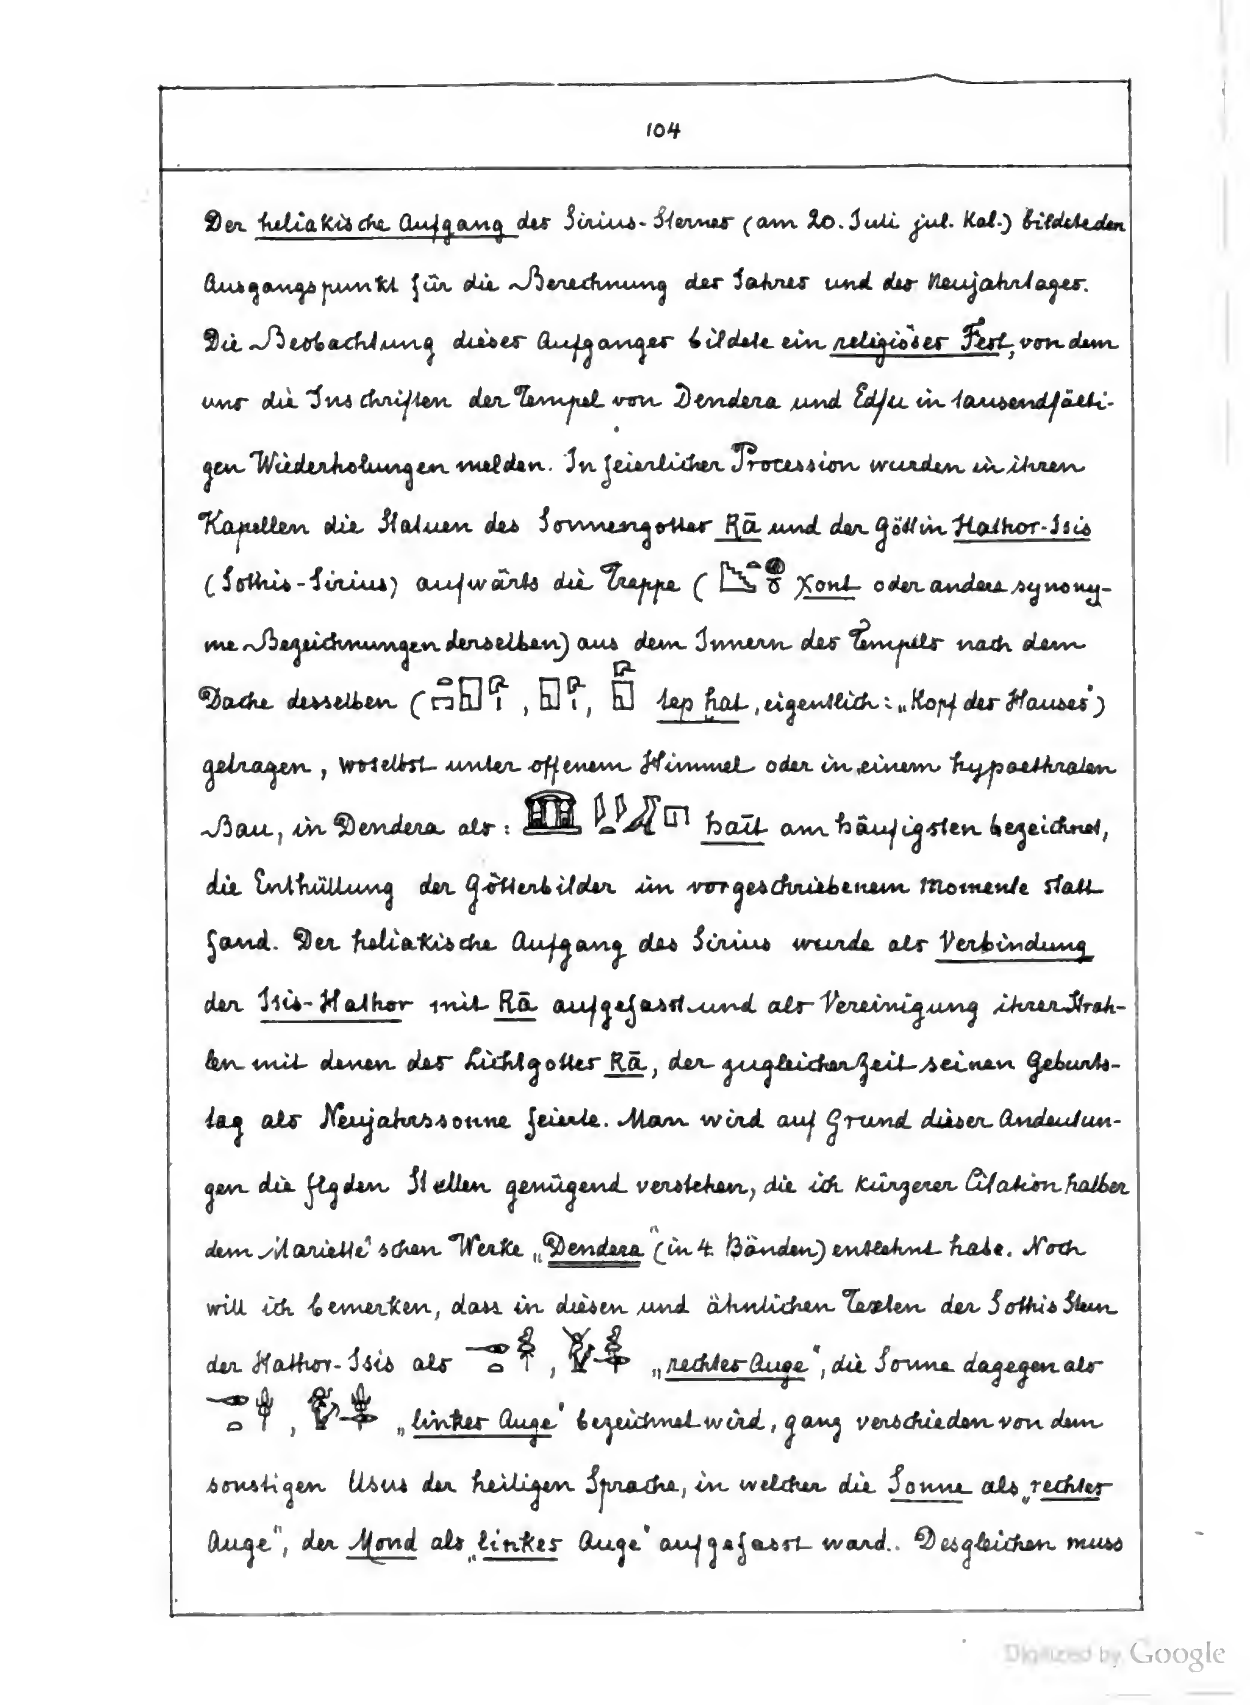 104
Der heliakische Aufgang des Sirius-Sternes (am 20. Juli jul. Kal.) bildete den
Ausgangspunkt für die Berechnung des Jahres und des Neujahrstages.
Die Beobachtung dieses Aufganges bildete ein religiöses Fest, von dem
uns die Inschriften der Tempel von Dendera und Edfu in tausendfälti-
gen Wiederholungen melden. In feierlicher Procession wurden in ihren
Kapellen die Statuen des Sonnengottes Rā und der Göttin Hathor-Isis
(Sothis-Sirius) aufwärts die Treppe ( χont oder andere synony-
me Bezeichnungen derselben) aus dem Innern des Tempels nach dem
Dache desselben ( , , tep hat, eigentlich: „Kopf des Hauses")
getragen, woselbst unter offenem Himmel oder in einem hypaethralen
Bau, in Dendera als: haīt am häufigsten bezeichnet,
die Enthüllung der Götterbilder im vorgeschriebenem Momente statt
fand. Der heliakische Aufgang des Sirius wurde als Verbindung
der Isis-Hathor mit Rā aufgefasst und als Vereinigung ihrer Strah-
len mit denen des Lichtgottes Rā, der zugleicher Zeit seinen Geburts-
tag als Neujahrssonne feierte. Man wird auf Grund dieser Andeutun-
gen die flgden Stellen genügend verstehen, die ich kürzerer Citation halber
dem Mariette'schen Werke „Dendera" (in 4. Bänden) entlehnt habe. Noch
will ich bemerken, dass in diesen und ähnlichen Texten der Sothis Stern
der Hathor-Isis als , „rechtes Auge", die Sonne dagegen als
, „linkes Auge" bezeichnet wird, ganz verschieden von dem
sonstigen Usus der heiligen Sprache, in welcher die Sonne als „rechtes
Auge", der Mond als „linkes Auge" aufgefasst ward. Desgleichen muss
Digitized by Google